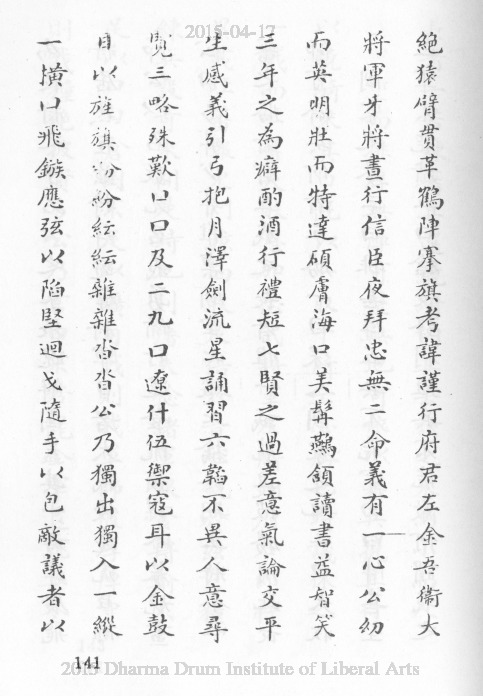 2015-04-17
絕猿臂貫革鶴陣搴旗考諱謹行府君左金吾衞大
將軍牙將晝行信臣夜拜忠無二命義有一心公幼
而英明壯而特達碩膚海口美髯鷰頷讀書益智笑
三年之為癖酌酒行禮短七賢之過差意氣論交平
生感義引弓抱月澤劍流星誦習六韜不異人意尋
覽三略殊歎口口及二九口遼什伍禦寇耳以金鼓
目以旌旗紛紛紜紜雜雜沓沓公乃獨出獨入一縱
一撗口飛鏃應弦以陷堅迴戈隨手以包敵議者以
141
2015 Dharma Drum Institute of Liberal Arts